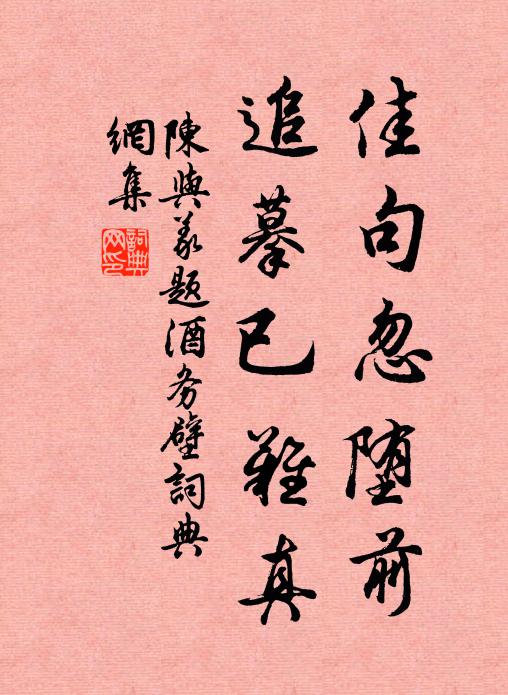 佳句忽堕前
追摹已難真
陳與義题酒务壁詞典
網集
詞典
网印